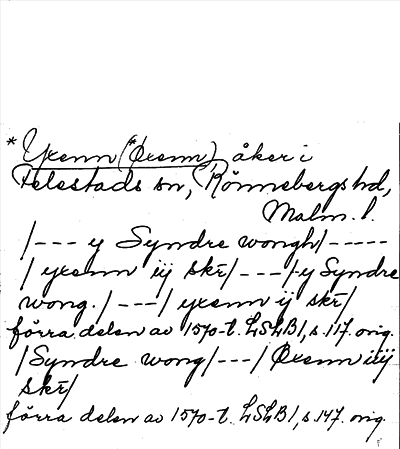 * Yxenn (*Øxenn) åker i
Felestads sn, Rönnebergs hd,
Malm. l.
/--- y Syndre wongh/-----
/ yxenn iij skr/---/y Syndre
wong. /---/ yxenn ij skr/
förra delen av 1570-t. LSLB1, s. 117. orig.
/Syndre wong/---/ Øxenn iiij
skr/
förra delen av 1570-t. LSLB1, s. 147. orig.